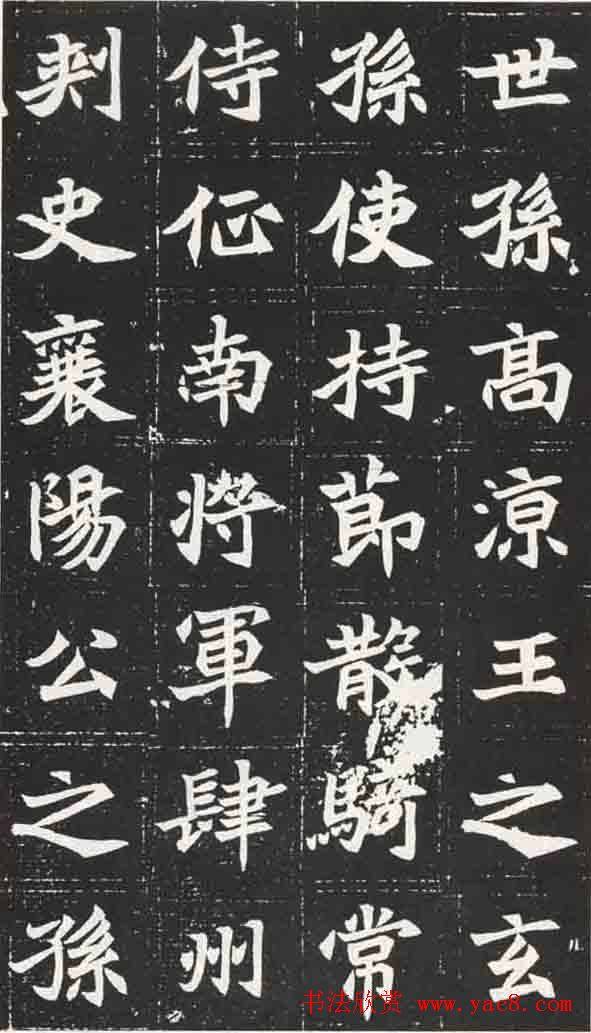 世孫髙涼王之玄
孫使持莭散騎常
侍征南將軍肆州
刾史襄陽公之孫
书法欣赏 www.yac8.com